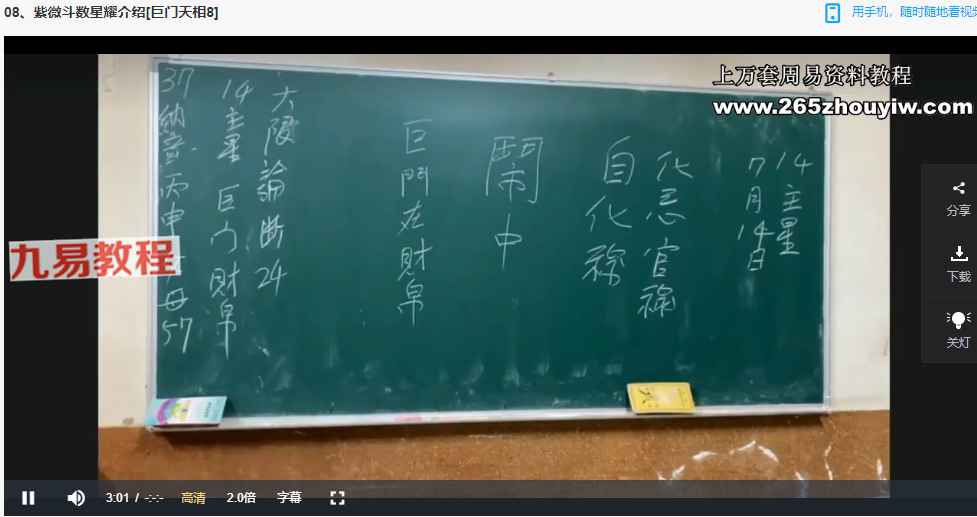 08、紫微斗数星耀介绍[巨门天相8]
用手机，随时随地看视频
上万套周易资料教程
www.265zhouyiw.com
14主星
7月14日
化忌官祿
自化祿
鬧中
巨門在財帛
大限論断24
14主星巨门財帛
37納音丙申
母57
九易教程
分享
下载
关灯
3:01 / -:-:-
高清
2.0倍
字幕